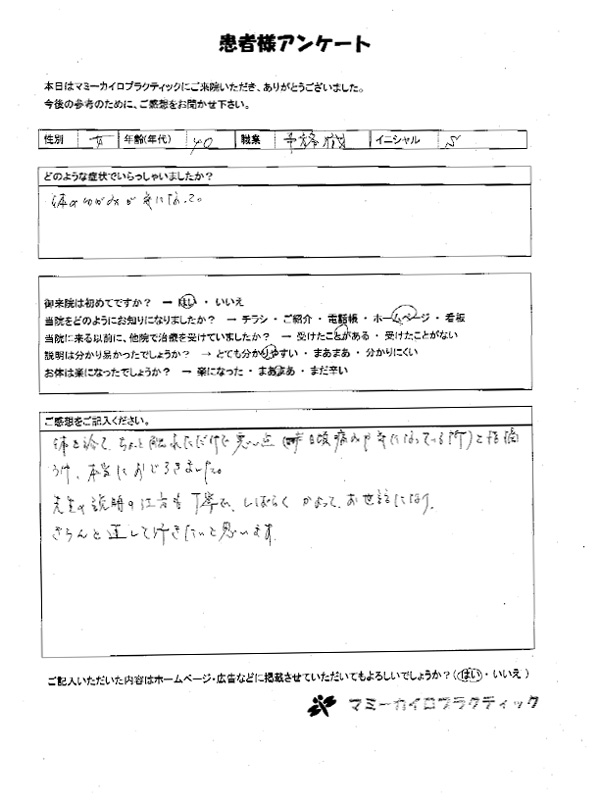 患者様アンケート
本日はマミーカイロプラクティックにご来院いただき、ありがとうございました。
今後の参考のために、ご感想をお聞かせ下さい。
性別 女 年齢(年代) 40 職業 事務職 イニシャル S
どのような症状でいらっしゃいましたか？
体のゆがみが気になって。
御来院は初めてですか？ → はい ・ いいえ
当院をどのようにお知りになりましたか？ → チラシ ・ ご紹介 ・ 電話帳 ・ ホームページ ・ 看板
当院に来る以前に、他院で治療を受けていましたか？ → 受けたことがある ・ 受けたことがない
説明は分かり易かったでしょうか？ → とても分かりやすい ・ まあまあ ・ 分かりにくい
お体は楽になったでしょうか？ → 楽になった ・ まあまあ ・ まだ辛い
ご感想をご記入ください。
体を診て、ちょっと触れただけで悪い点(日頃痛みや気になっている所)を指摘
うけ、本当におどろきました。
先生の説明の仕方も丁寧で、しばらくかよって、お世話になり、
きちんと直して行きたいと思います。
ご記入いただいた内容はホームページ・広告などに掲載させていただいてもよろしいでしょうか？(はい ・ いいえ)
マミーカイロプラクティック